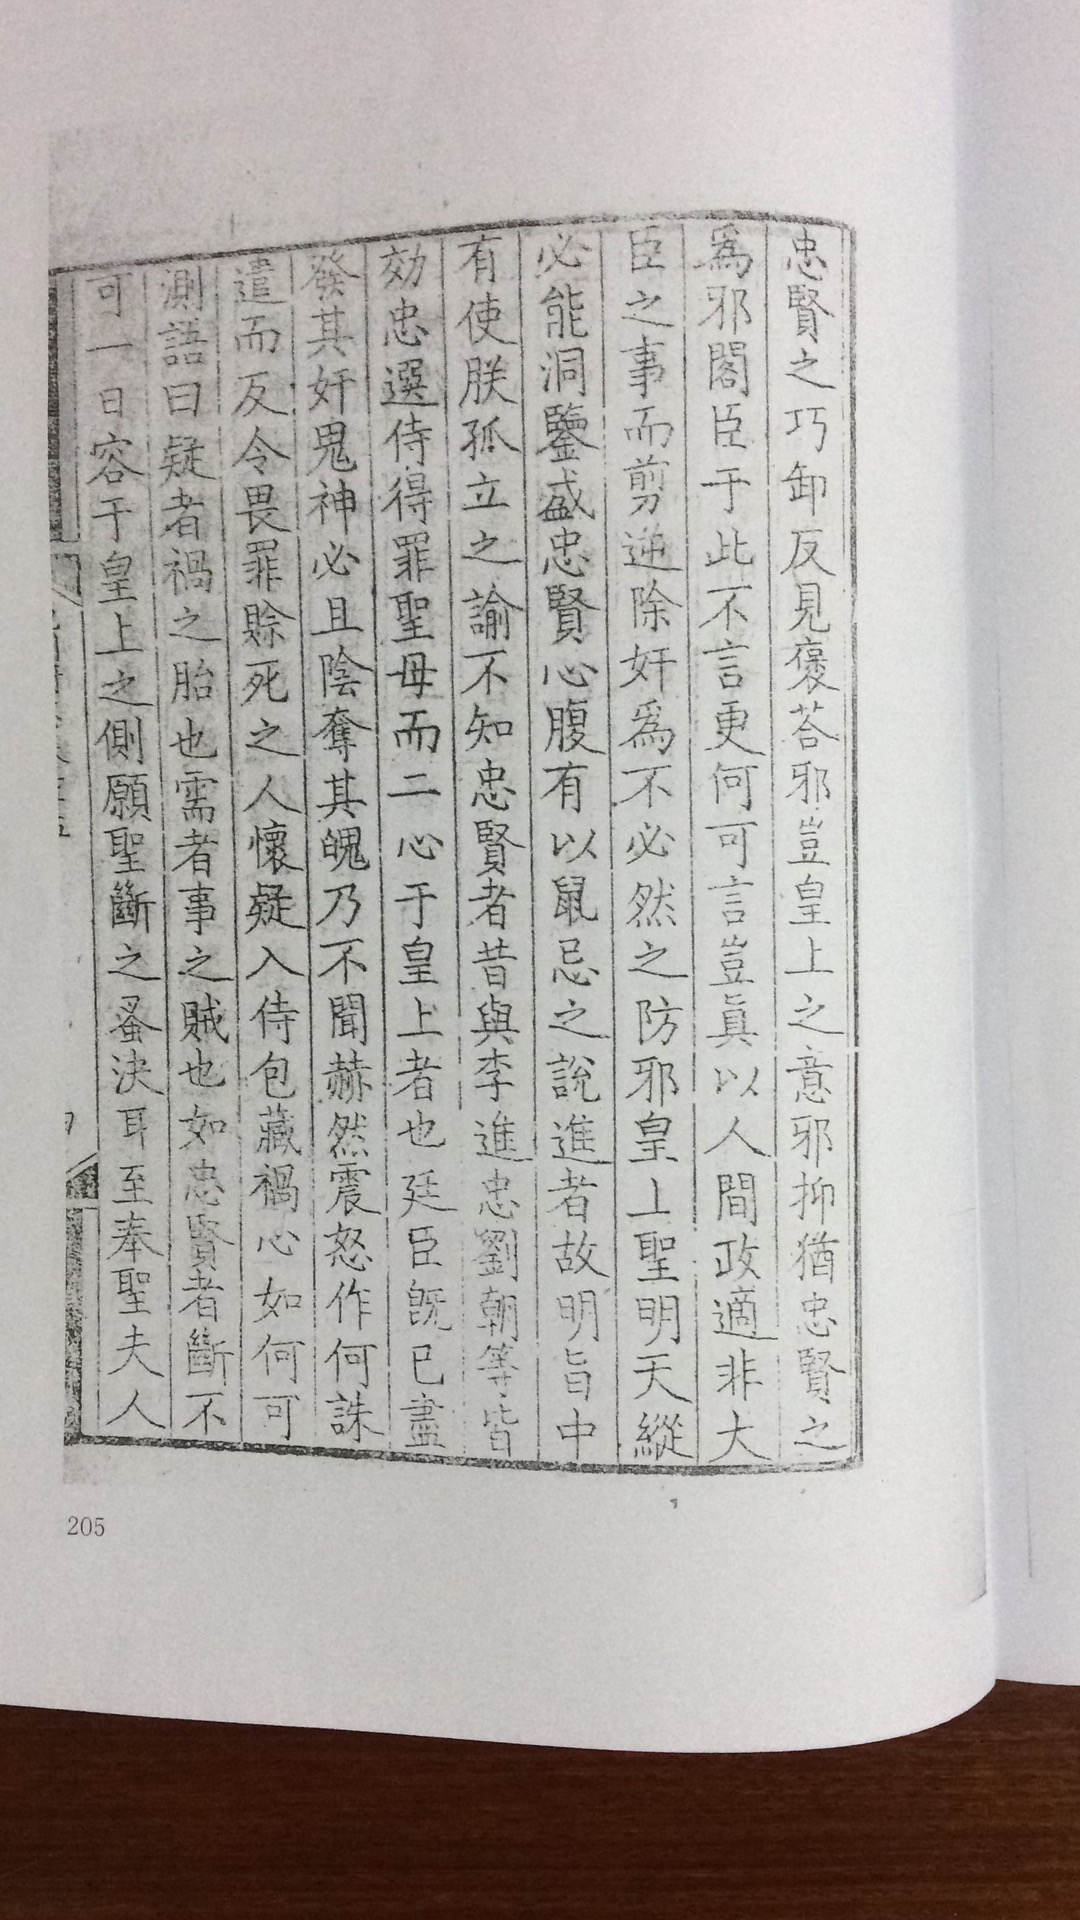 忠賢之巧卸反見褒荅邪豈皇上之意邪抑猶忠賢之
為邪閣臣于此不言更何可言豈真以人間政適非大
臣之事而剪逆除奸為不必然之防邪皇上聖明天縱
必能洞鑒盛忠賢心腹有以鼠忌之說進者故明旨中
有使朕孤立之諭不知忠賢者昔與李進忠劉朝等皆
効忠選侍得罪聖母而二心于皇上者也廷臣旣已盡
發其奸鬼神必且陰奪其魄乃不聞赫然震怒作何誅
遣而反令畏罪賒死之人懷疑入侍包藏禍心如何可
測語曰疑者禍之胎也需者事之賊也如忠賢者斷不
可一日容于皇上之側願聖斷之蚤決耳至奉聖夫人
205